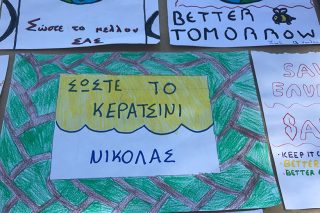 Σώστε το μελλον
ΣΑΣ
BETTER
TOMORROW
ΣΩΣΤΕ ΤΟ
ΚΕΡΑΤΣΙΝΙ
ΝΙΚΟΛΑΣ
·KEEP IT
·BETTER
·BETTER